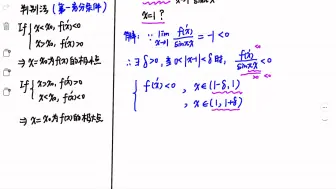 判别法（第一充分条件）
If { x<x₀, f'(x)<0
x>x₀, f'(x)>0
⇒ x=x₀为f(x)的极小点
If { x>x₀, f'(x)<0
x<x₀, f'(x)>0
⇒ x=x₀为f(x)的极大点
x→1 sinπx
x=1 ?
解: ∵ lim x→1 f'(x)/sinπx = -1 < 0
∴ ∃ δ>0, 当 0<|x-1|<δ 时, f'(x)/sinπx < 0
{ f'(x)<0 , x∈(1-δ, 1)
, x∈(1, 1+δ)